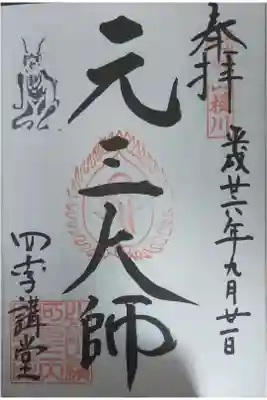 奉拝
平成廿六年九月廿一日
元三大師
四季講堂
横川